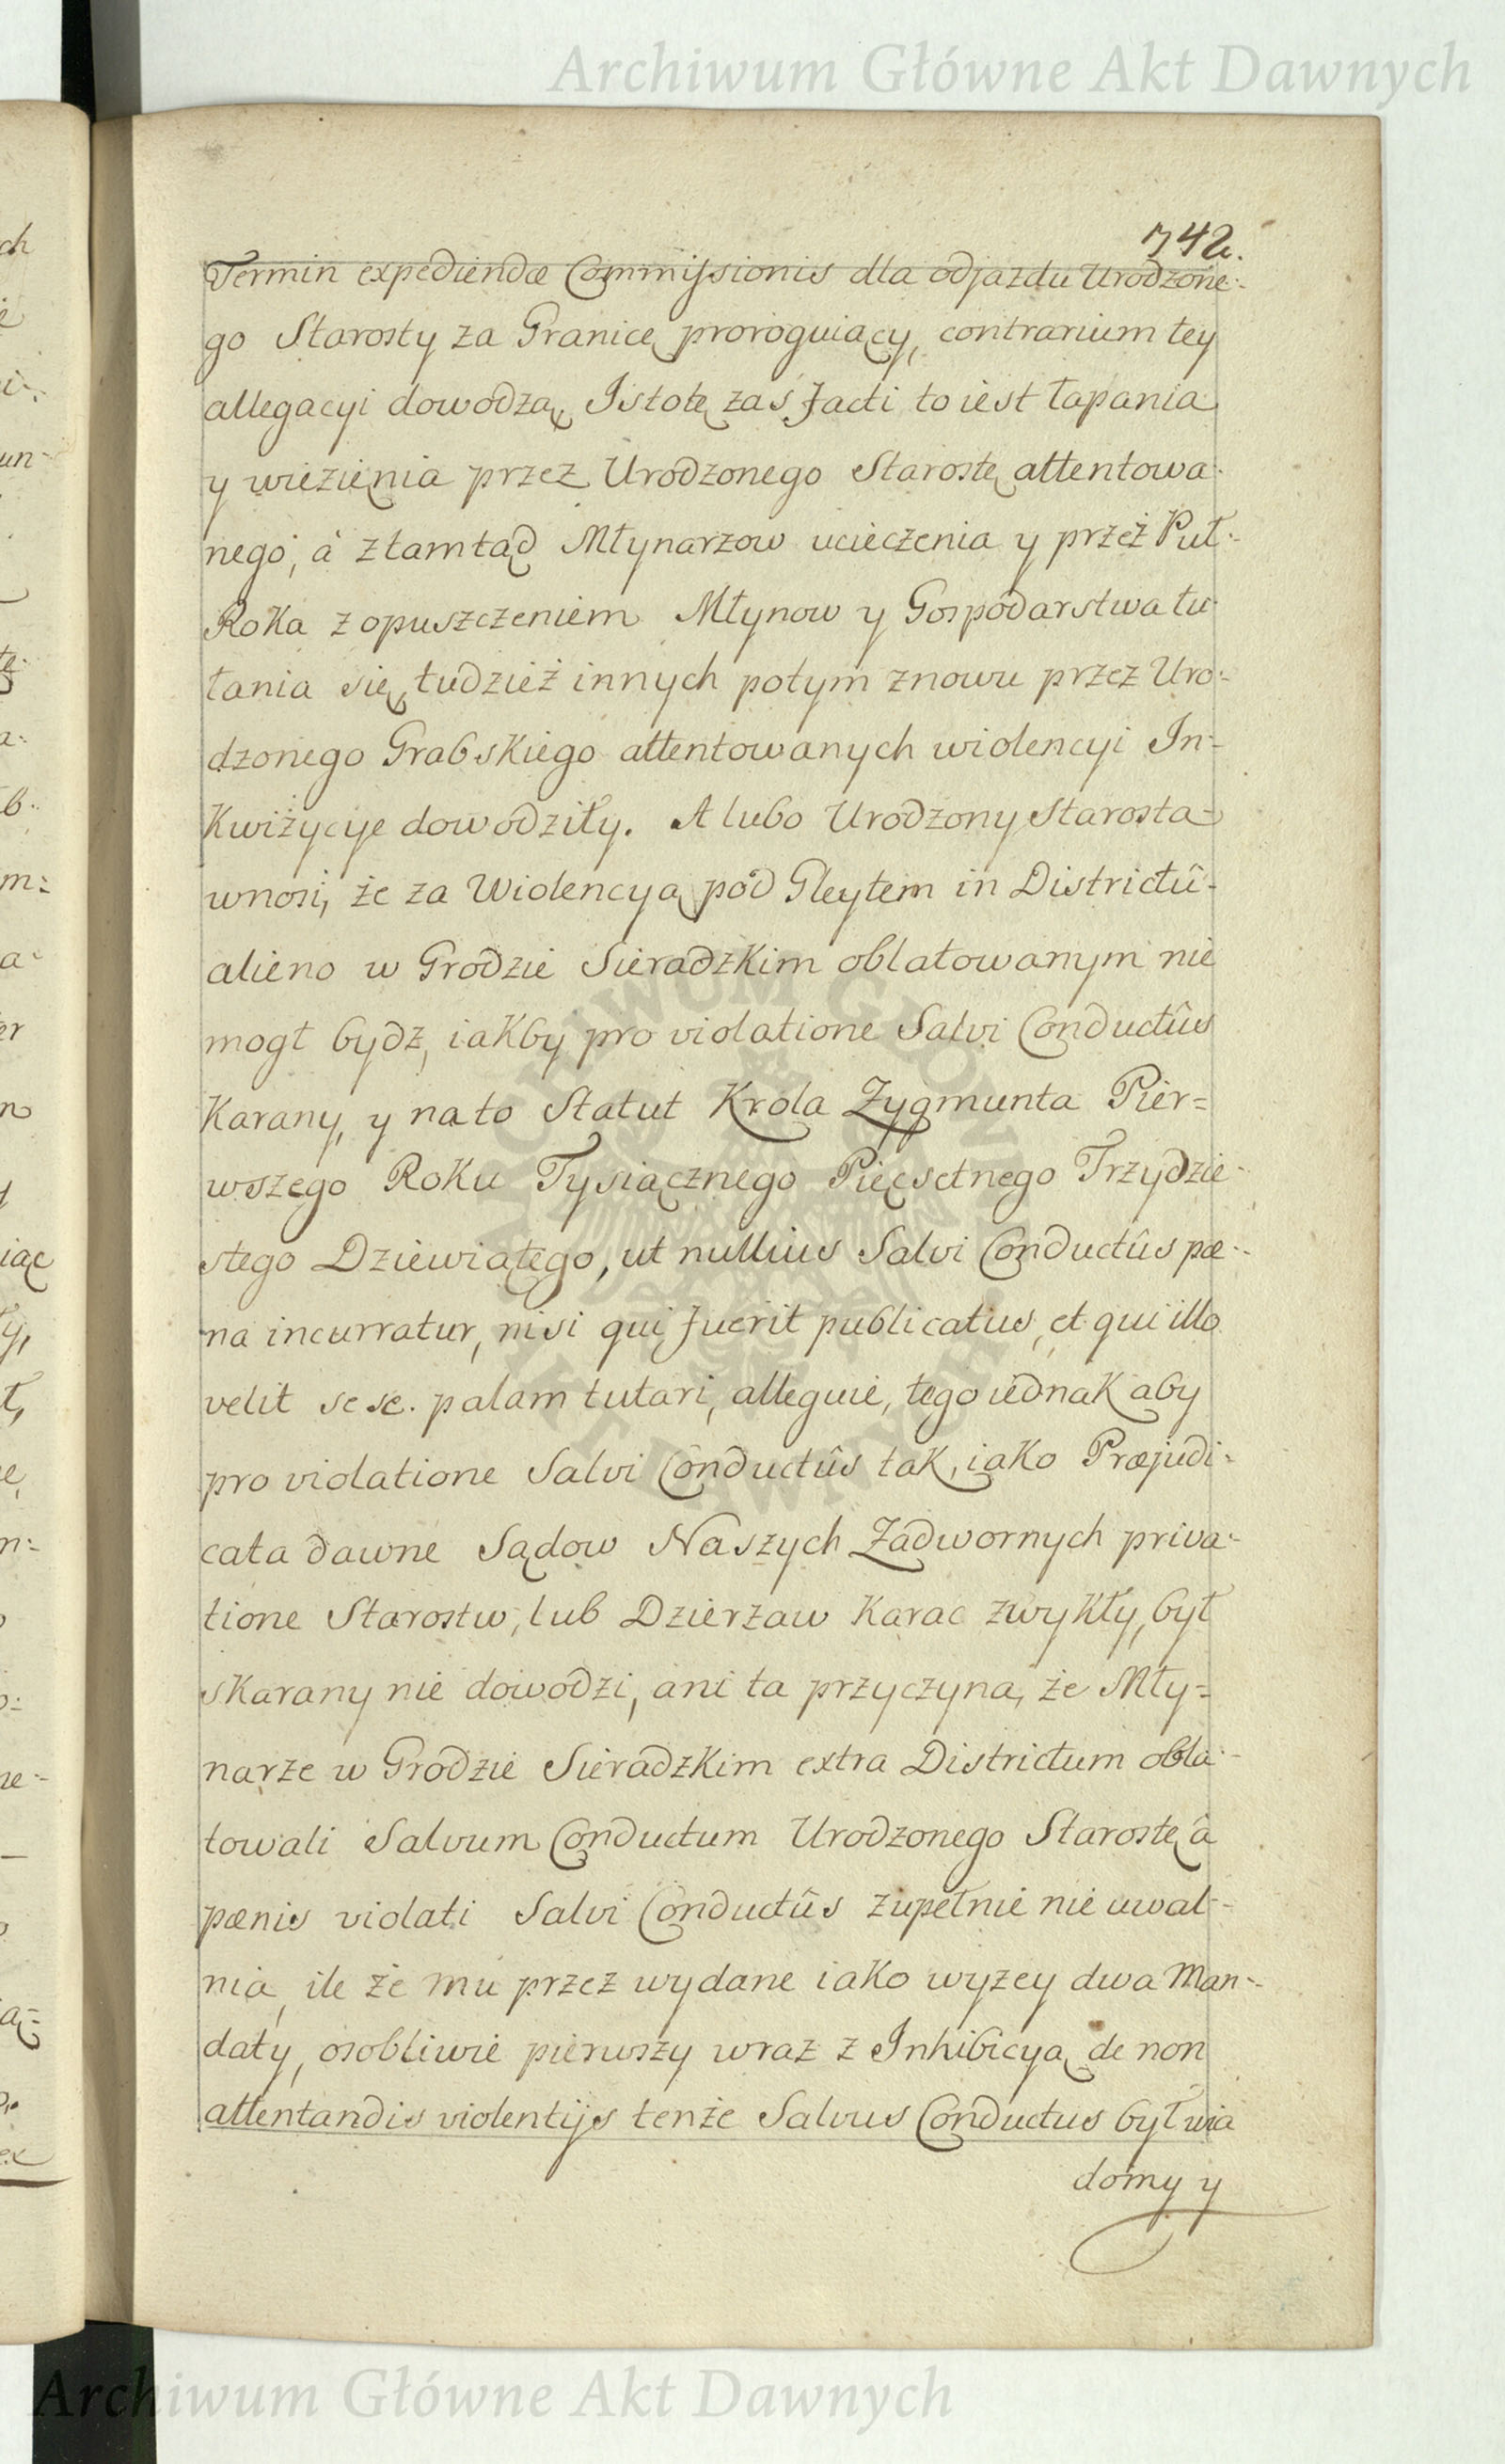 Archiwum Główne Akt Dawnych
742.
Termin expediendæ Commissionis dla odjazdu Urodzone-
go Starosty za Granicę proroguiący, contrarium tey
allegacyi dowodzą, Istotę zaś facti to iest łapania
y więzienia przez Urodzonego Starostę attentowa-
nego, à ztamtąd Młynarzow ucieczenia y przeż Puł-
Roka z opuszczeniem Młynow y Gospodarstwa tu-
łania się, tudzież innych potym znowu przez Uro-
dzonego Grabskiego attentowanych wiolencyi In-
kwiżycye dowodziły. A lubo Urodzony Starosta
wnosi, że za Wiolencyą pod Gleytem in Districtû
alieno w Grodzie Sieradzkim oblatowanym nie
mogł bydz, iakby pro violatione Salvi Conductûs
Karany, y na to Statut Krola Zygmunta Pier-
wszego Roku Tysiącznego Pięcsetnego Trzydzie-
stego Dziewiątego, ut nullius Salvi Conductûs pæ-
na incurratur, nisi qui fuerit publicatus, et qui illo
velit sese. palam tutari, alleguie, tego iednak aby
pro violatione Salvi Conductûs tak, iako Præjudi-
cata dawne Sądow Naszych Zadwornych priva-
tione Starostw, lub Dzierżaw Karac zwykły, był
skarany nie dowodzi, ani ta przyczyna, że Mły-
narze w Grodzie Sieradzkim extra Districtum obla-
towali Salvum Conductum Urodzonego Starostę â
pænis violati Salvi Conductûs zupełnie nie uwal-
nia, ile że mu przez wydane iako wyzey dwa Man-
daty, osobliwie pierwszy wraz z Inhibicyą de non
attentandis violentijs tenże Salvus Conductus był wia
domy y
Archiwum Główne Akt Dawnych